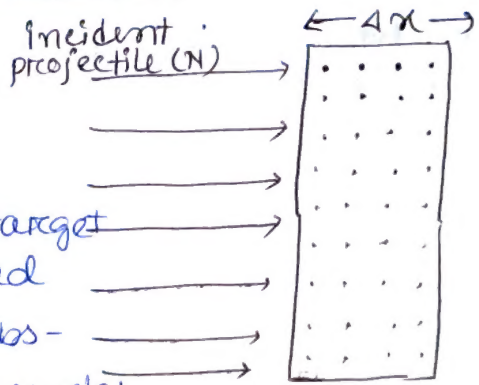 incident
projectile (N)
← Δx →
target
d
bs-